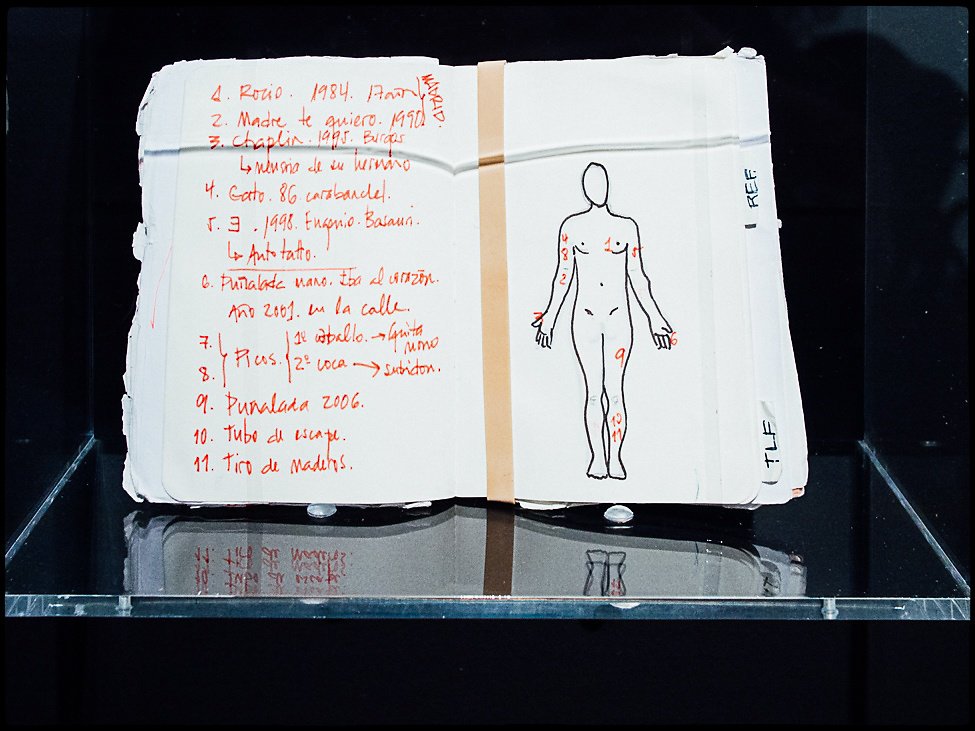 1. Rocío. 1984. 17 años
MADRID.
2. Madre te quiero. 1990.
3. Chaplin. 1995. Burgos
↳ memoria de su hermano
4. Gato. 86 carabanchel.
5. Ǝ . 1998. Eugenio. Basauri.
↳ Autotatto.
6. Puñalada mano. Iba al corazón.
Año 2001. en la calle.
7. 1º caballo. → Quita mono
Picos.
8. 2º coca → subidon.
9. Puñalada 2006.
10. Tubo de escape.
11. Tiro de maderos.
4
8
2
1
5
3
6
9
10
11
REF.
TLF